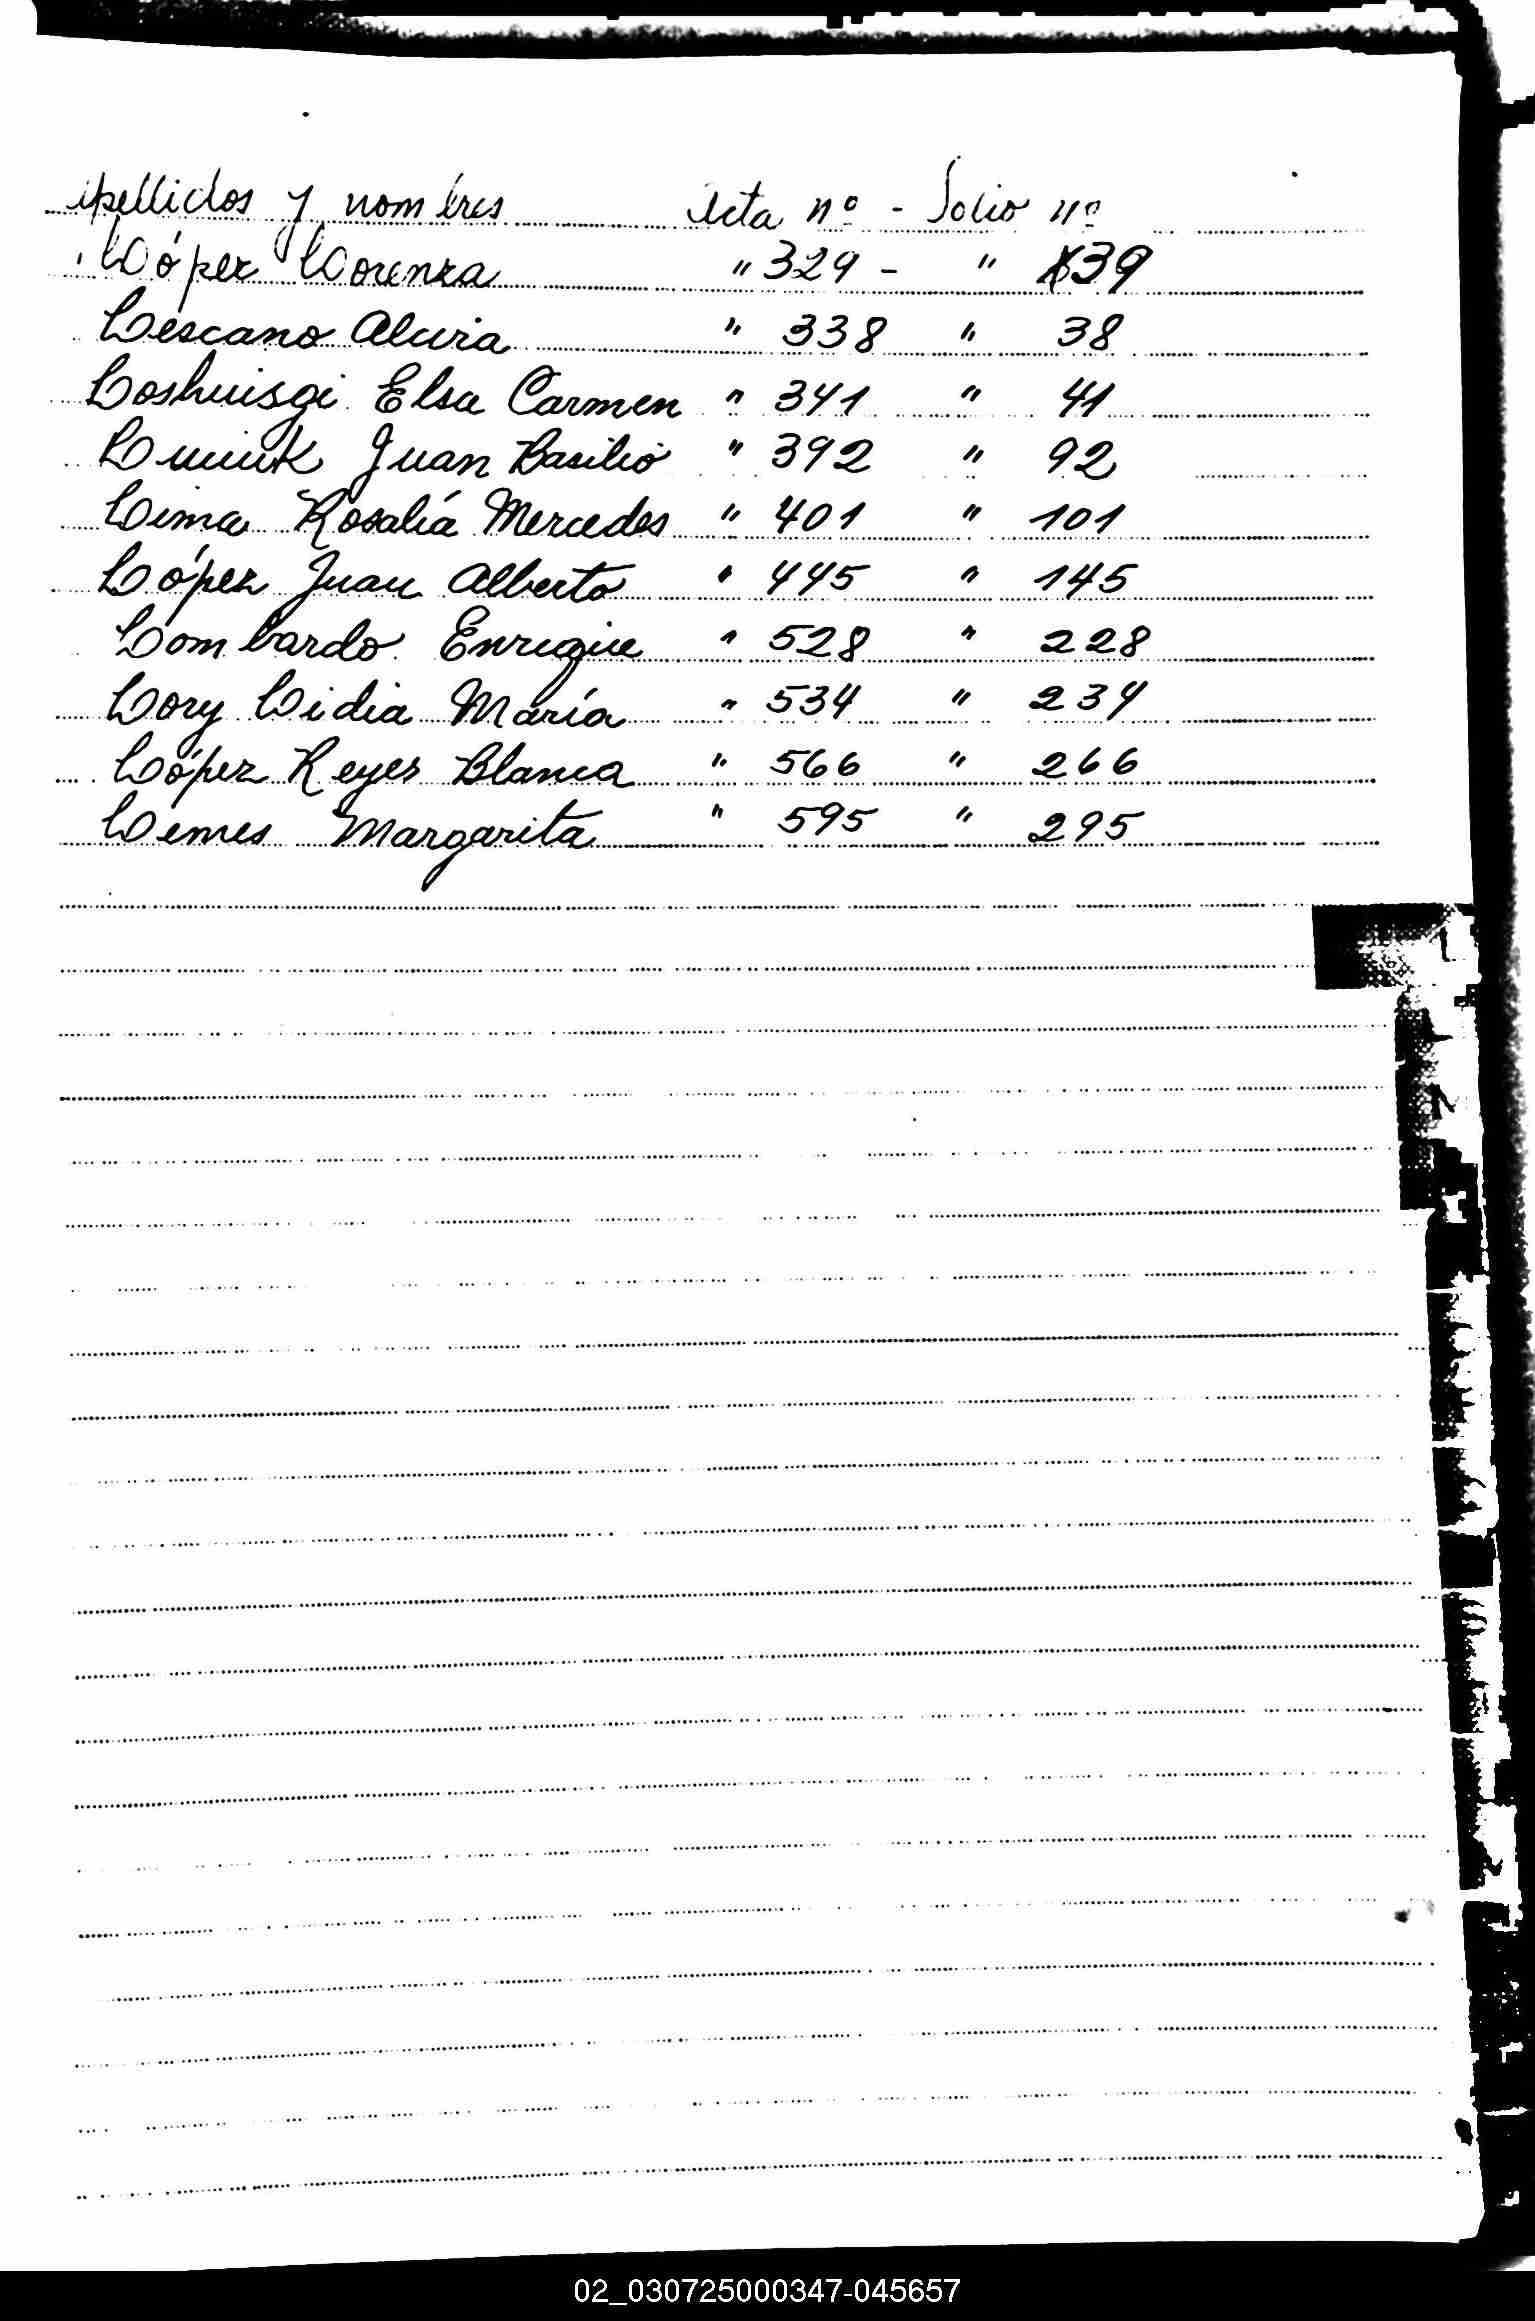 Apellidos y nombres Acta nº - Folio nº
López Lorenza " 329 - " 39
Lescano Alcira " 338 " 38
Elsa Carmen " 341 " 41
Juan Basilio " 392 " 92
Lima Rosalía Mercedes " 401 " 101
López Juan Alberto " 445 " 145
Lombardo Enrique " 528 " 228
Lory Lidia María " 534 " 234
López Reyes Blanca " 566 " 266
Lemes Margarita " 595 " 295
02_030725000347-045657